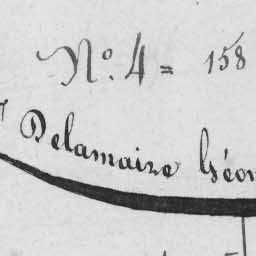 N.º 4 = 158
Delamaire Géom